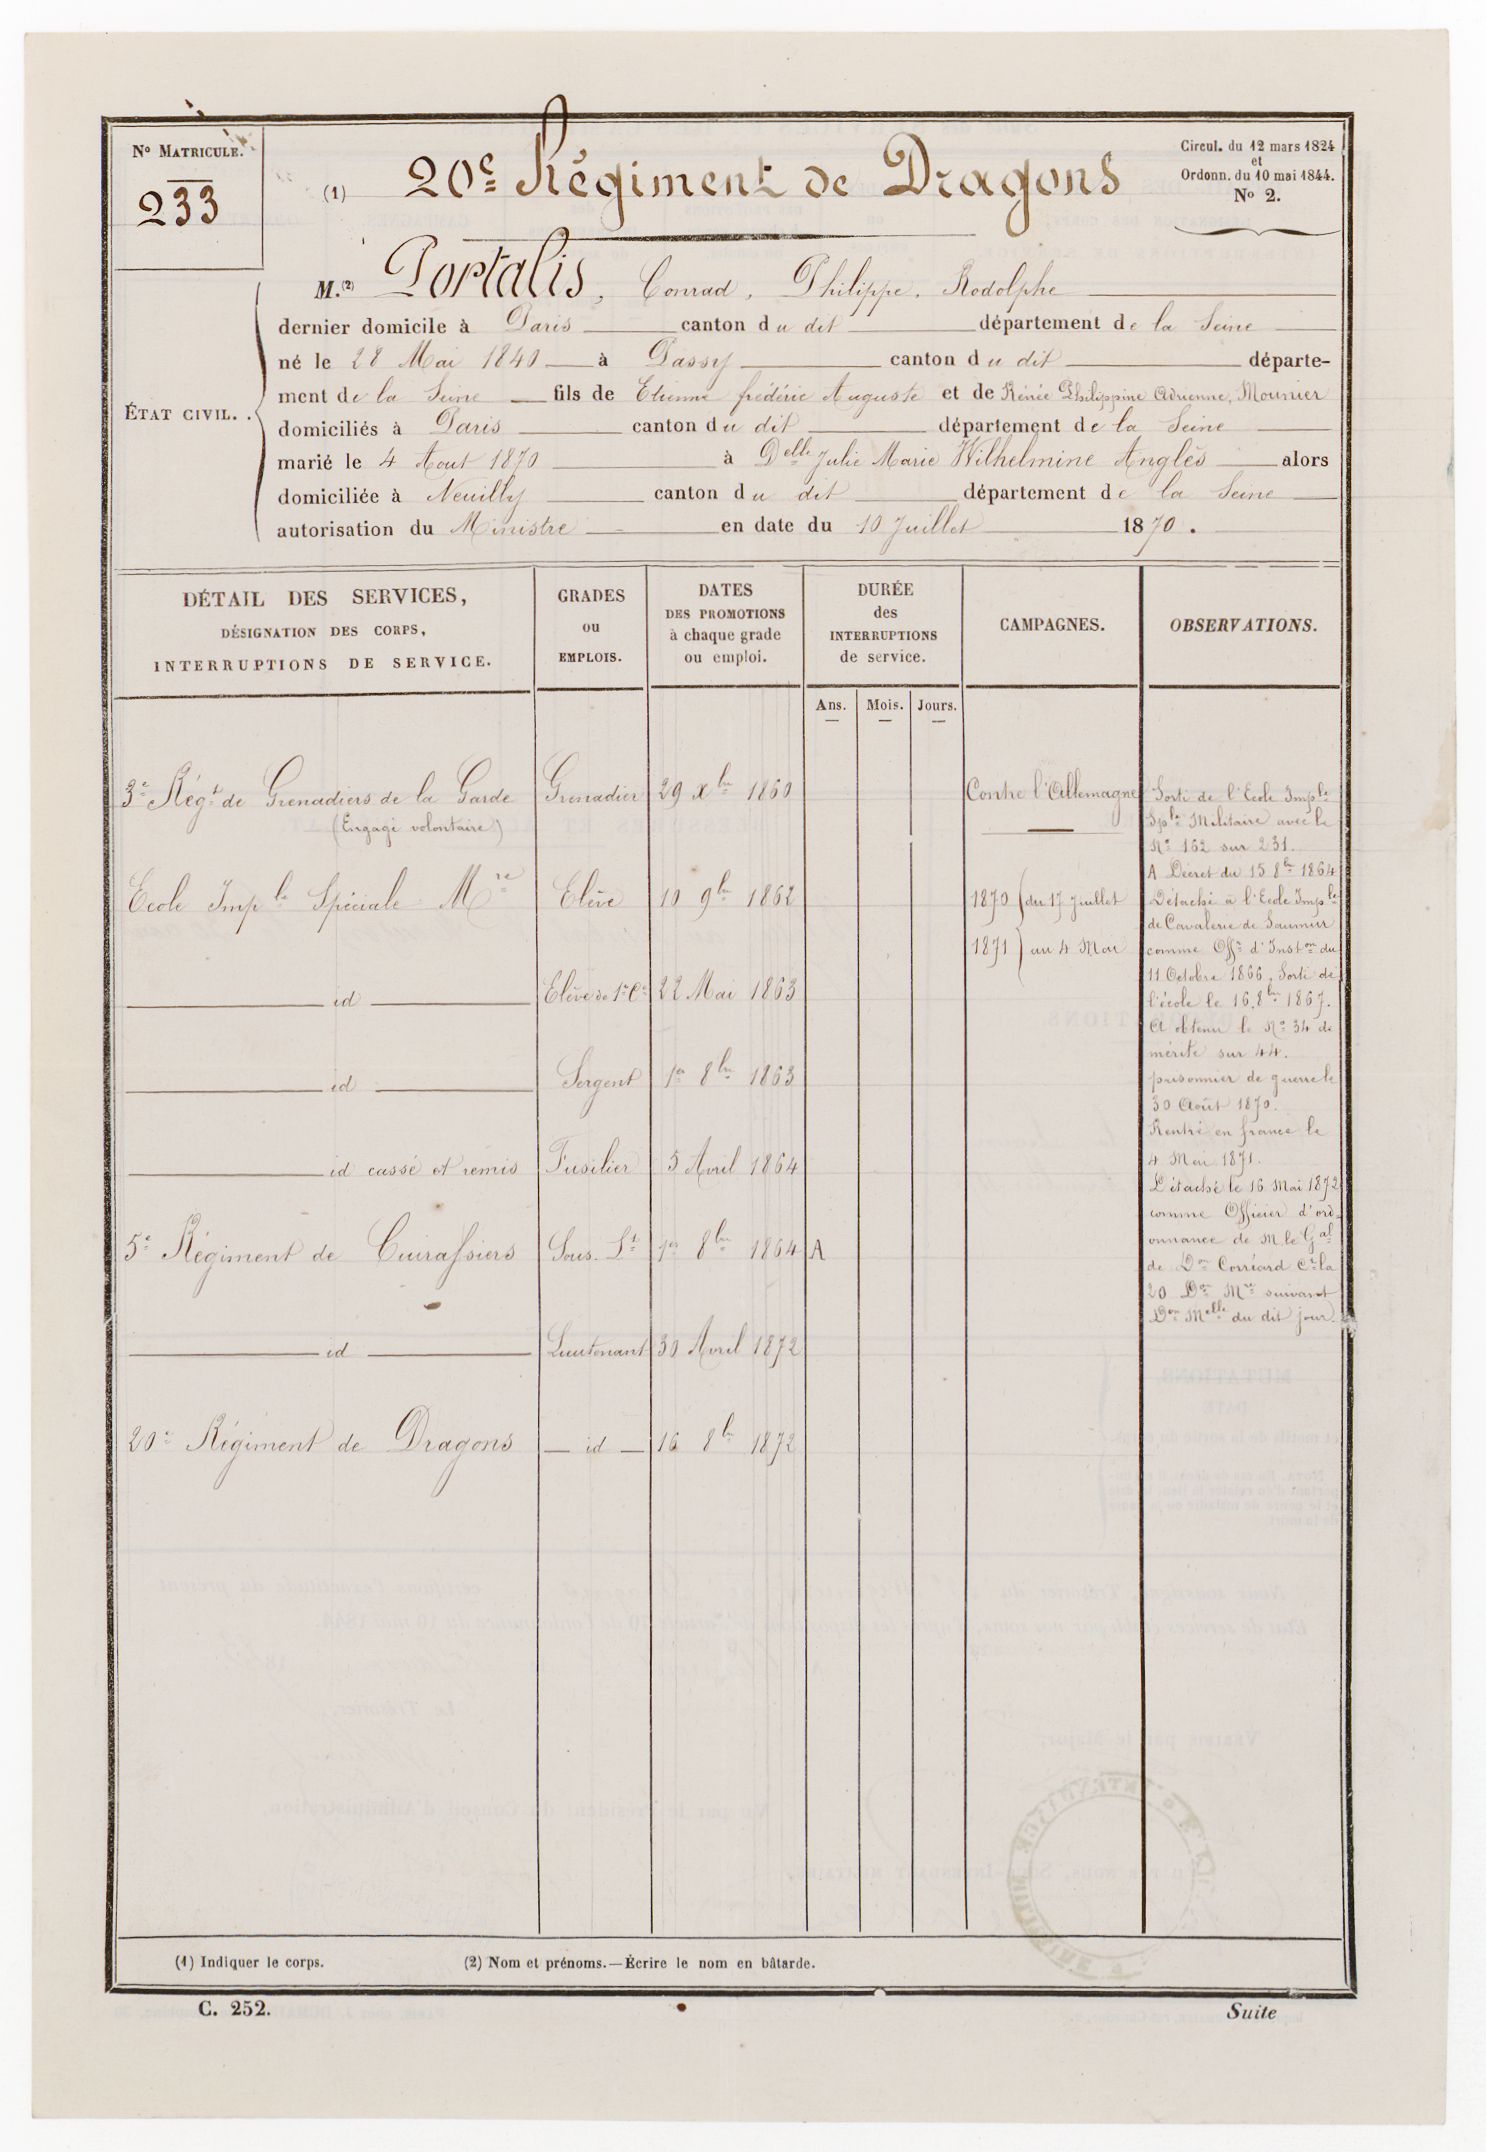 N° MATRICULE.
233
(1) 20e Régiment de Dragons
Circul. du 12 mars 1824
et
Ordonn. du 10 mai 1844.
N° 2.
ÉTAT CIVIL.
M.(2) Portalis, Conrad, Philippe, Rodolphe
dernier domicile à Paris canton du dit département de la Seine
né le 28 Mai 1840 à Passy canton du dit départe-
ment de la Seine fils de Etienne frédéric Auguste et de Rénée Philippine Adrienne, Mounier
domiciliés à Paris canton du dit département de la Seine
marié le 4 Aout 1870 à Delle Julie Marie Wilhelmine Anglès alors
domiciliée à Neuilly canton du dit département de la Seine
autorisation du Ministre en date du 10 Juillet 1870.
DÉTAIL DES SERVICES,
DÉSIGNATION DES CORPS,
INTERRUPTIONS DE SERVICE.
GRADES
ou
EMPLOIS.
DATES
DES PROMOTIONS
à chaque grade
ou emploi.
DURÉE
des
INTERRUPTIONS
de service.
Ans. Mois. Jours.
CAMPAGNES.
OBSERVATIONS.
3e Régt de Grenadiers de la Garde Grenadier 29 Xbre 1860
(Engagé volontaire)
Ecole Imple Spéciale Mre Elève 10 9bre 1862
id Elève de 1re Cse 22 Mai 1863
id Sergent 1er 8bre 1863
id cassé et remis Fusilier 5 Avril 1864
5e Régiment de Cuirassiers Sous-Lt 1er 8bre 1864 A
id Lieutenant 30 Avril 1872
20e Régiment de Dragons id 16 8bre 1872
Contre l'Allemagne
1870 du 17 Juillet
1871 au 4 Mai
Sorti de l'Ecole Imple
Sple Militaire avec le
No 162 sur 231.
A Décret du 15 8bre 1864
Détaché à l'Ecole Imple
de Cavalerie de Saumur
comme Offr d'Inston du
11 Octobre 1866, Sorti de
l'école le 16 8bre 1867.
A obtenu le No 34 de
mérite sur 44.
prisonnier de guerre le
30 Août 1870.
Rentré en france le
4 Mai 1871.
Détaché le 16 Mai 1872
comme Officier d'ord-
onnance de M. le Gal
de Don Corréard Ct la
20 Don Mre suivant
Don Melle du dit jour.
(1) Indiquer le corps.
(2) Nom et prénoms.—Écrire le nom en bâtarde.
C. 252.
Suite